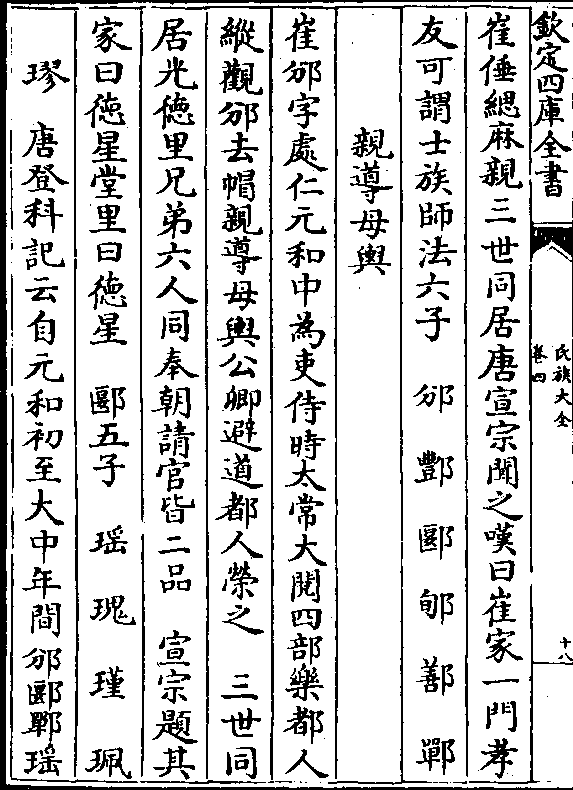 欽定四庫全書
氏族大全
卷四
十八
崔倕緦麻親三世同居唐宣宗聞之嘆曰崔家一門孝
友可謂士族師法六子 邠 酆 郾 郇 鄯 鄲
親導母輿
崔邠字處仁元和中為吏侍時太常大閱四部樂都人
縱觀邠去帽親導母輿公卿避道都人榮之 三世同
居光德里兄弟六人同奉朝請官皆二品 宣宗題其
家曰德星堂里曰德星 郾五子 瑶 瑰 瑾 珮
璆 唐登科記云自元和初至大中年間邠郾鄲瑶